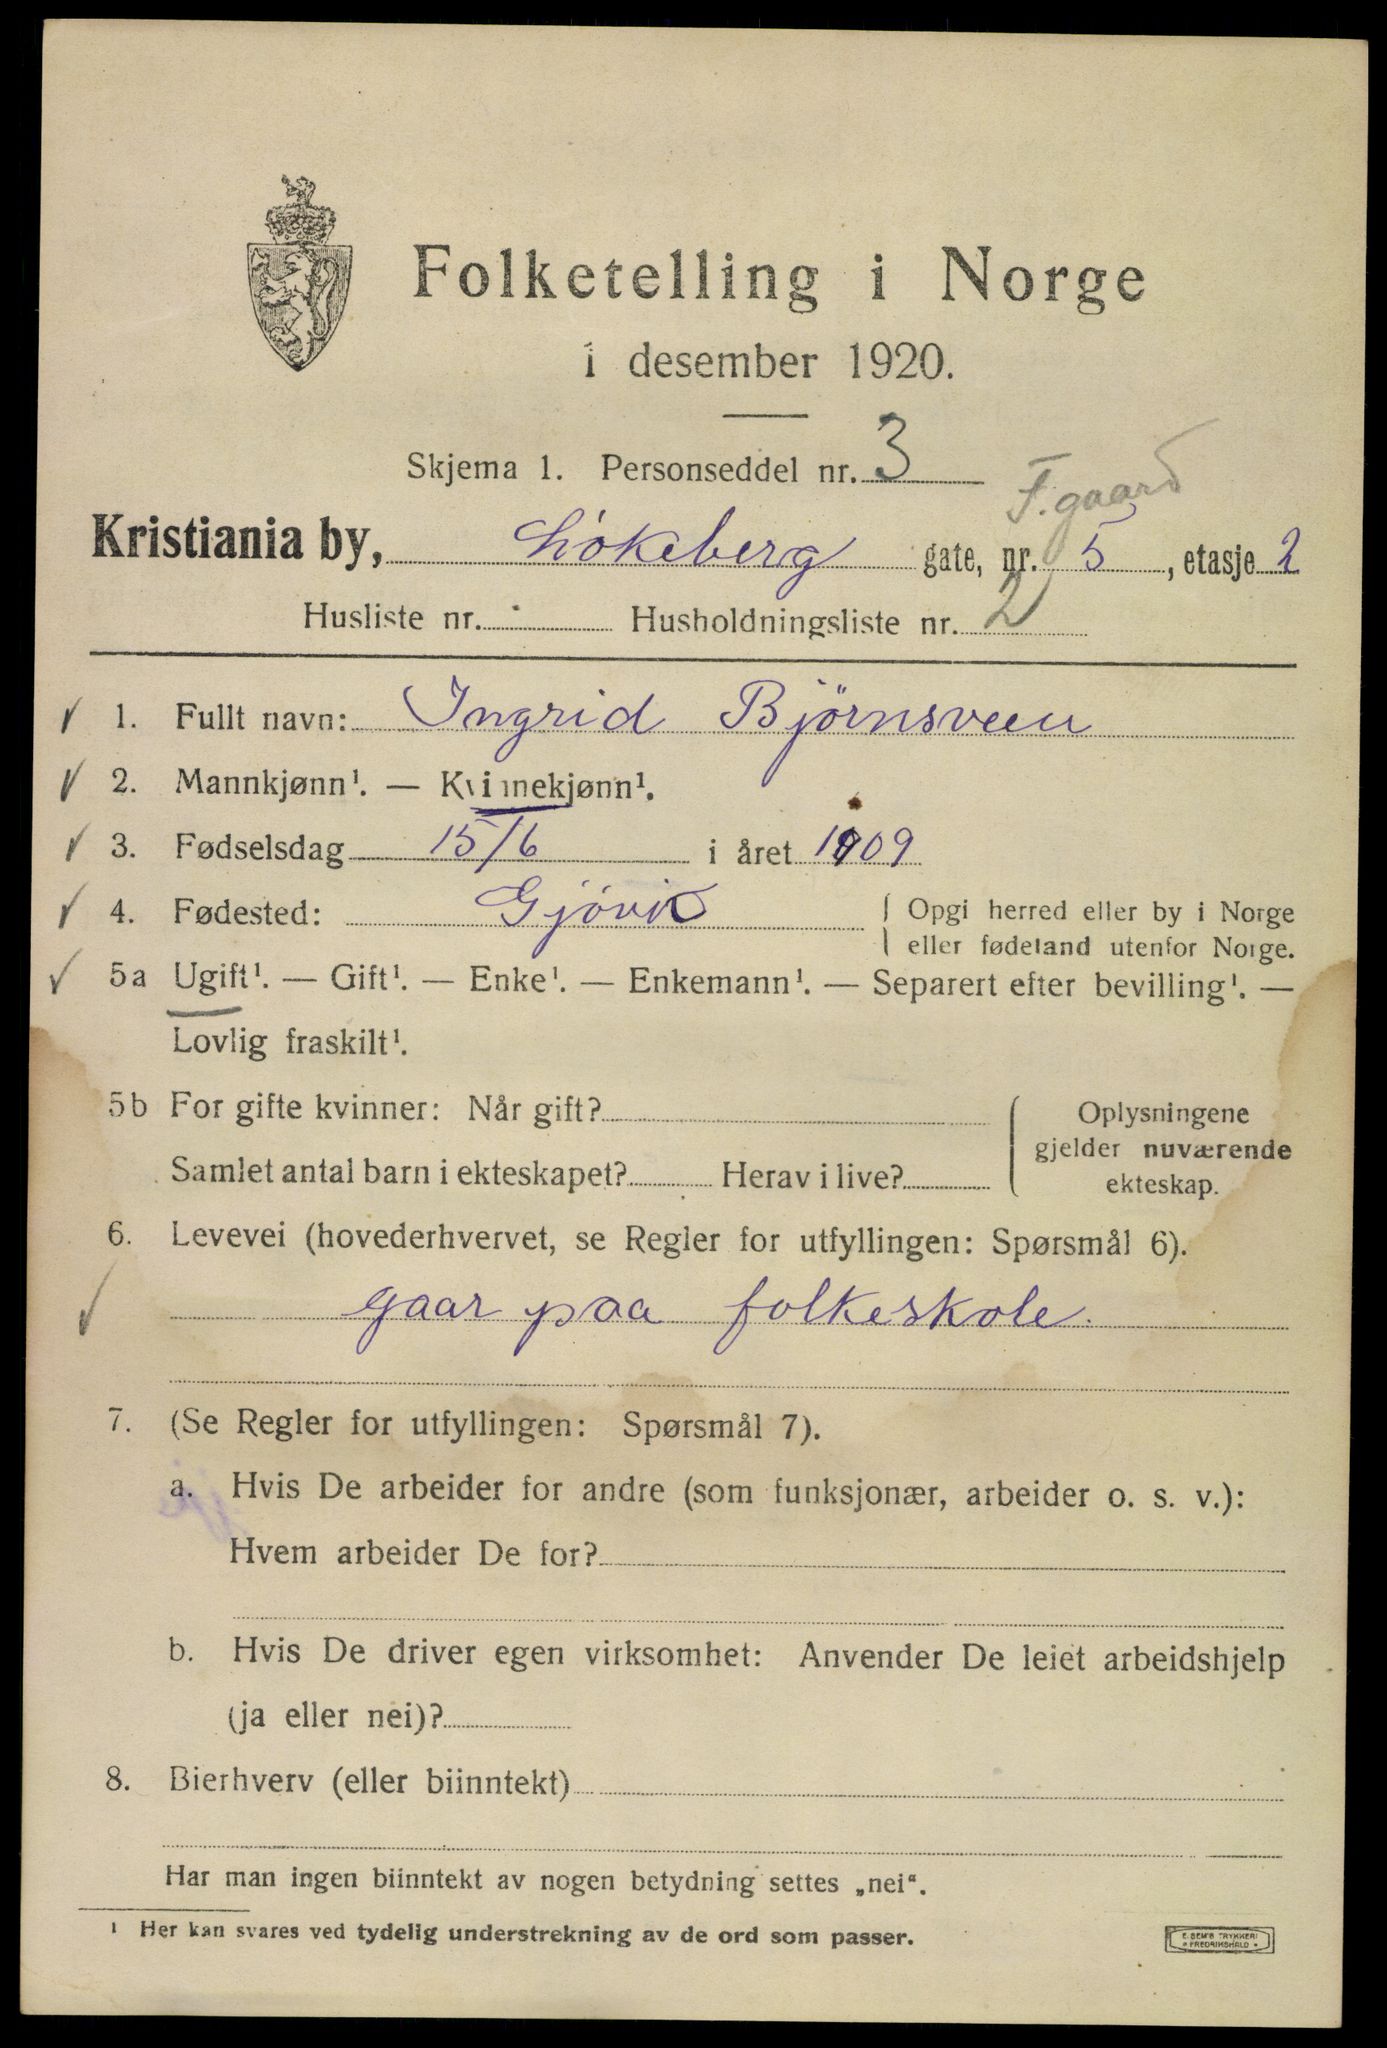 Folketelling i Norge
i desember 1920.
Skjema 1. Personseddel nr. 3
F.gaard
Kristiania by, Lökeberg gate, nr. 5, etasje 2
Husliste nr. Husholdningsliste nr. 2
1. Fullt navn: Ingrid Björnsveen
2. Mannkjønn¹. — Kvinnekjønn¹.
3. Fødselsdag 15/6 i året 1909
4. Fødested: Gjövik { Opgi herred eller by i Norge
eller fødeland utenfor Norge.
5a Ugift¹. — Gift¹. — Enke¹. — Enkemann¹. — Separert efter bevilling¹. —
Lovlig fraskilt¹.
5b For gifte kvinner: Når gift? { Oplysningene
gjelder nuværende
Samlet antal barn i ekteskapet? Herav i live? ekteskap.
6. Levevei (hovederhvervet, se Regler for utfyllingen: Spørsmål 6).
gaar paa folkeskole.
7. (Se Regler for utfyllingen: Spørsmål 7).
a. Hvis De arbeider for andre (som funksjonær, arbeider o. s. v.):
Hvem arbeider De for?
b. Hvis De driver egen virksomhet: Anvender De leiet arbeidshjelp
(ja eller nei)?
8. Bierhverv (eller biinntekt)
Har man ingen biinntekt av nogen betydning settes „nei“.
¹ Her kan svares ved tydelig understrekning av de ord som passer.
E. SEM'S TRYKKERI
FREDRIKSHALD